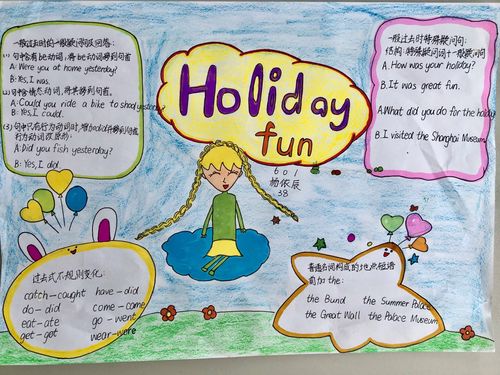 Holiday
fun
601
杨依辰
38
一般过去时的一般疑问句及回答:
(1) 句中含有be动词,将be动词移到句首
A: Were you at home yesterday?
B: Yes, I was.
(2) 句中含情态动词,将其移到句首
A: Could you ride a bike to shool yesterday?
B: Yes, I could.
(3) 句中只有行为动词时,增加did并移到句首
行为动词改原形.
A: Did you fish yesterday?
B: Yes, I did.
一般过去时特殊疑问句:
结构:特殊疑问词+一般疑问句
A. How was your holiday?
B. It was great fun.
A. What did you do for the holiday
B. I visited the Shanghai Museum.
过去式不规则变化:
catch-caught have-did
do-did come-come
eat-ate go-went
get-got wear-were
普通名词构成的地点短语
前加the:
the Bund the Summer Palace
the Great Wall the Palace Museum